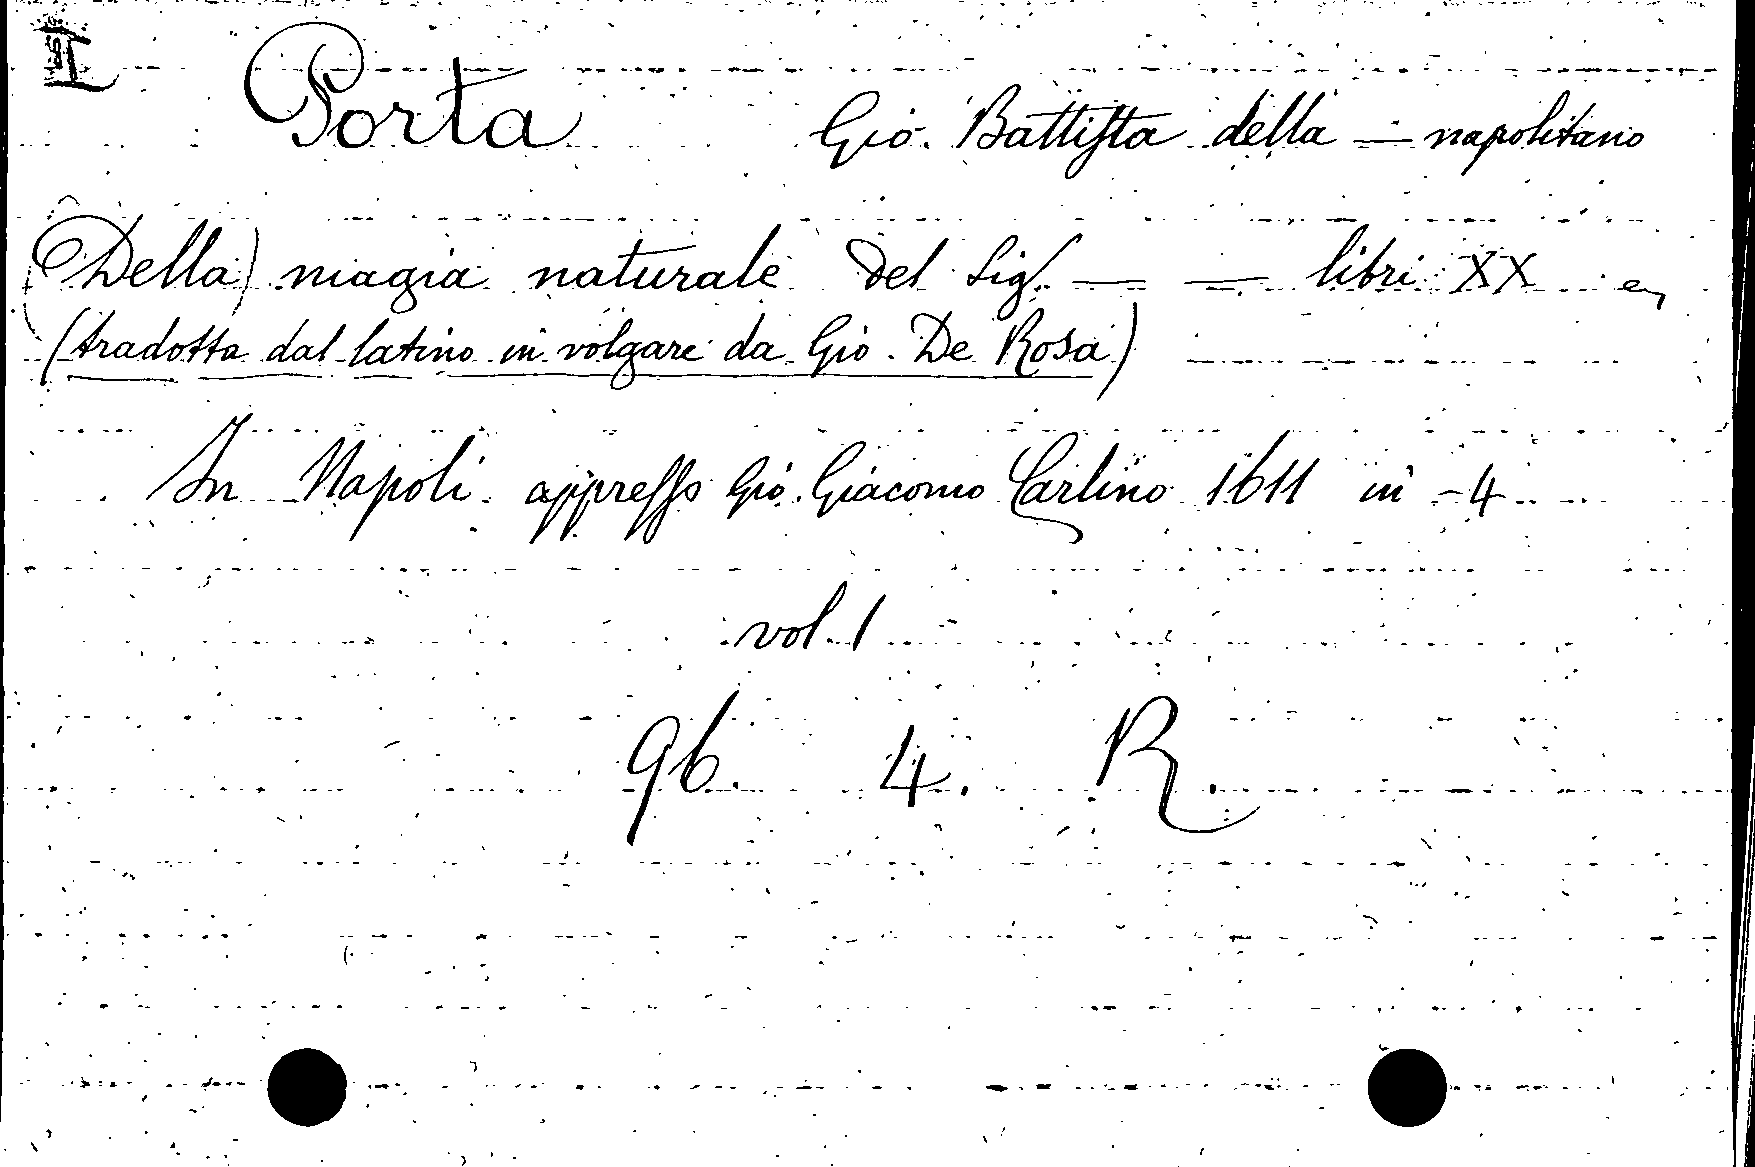 I
Porta Gio. Battista della — napolitano
(Della) magia naturale del Sig. — — libri XX
(tradotta dal latino in volgare da Gio. De Rosa)
In Napoli appresso Gio. Giacomo Carlino 1611 in-4
vol. 1
96. 4. R.